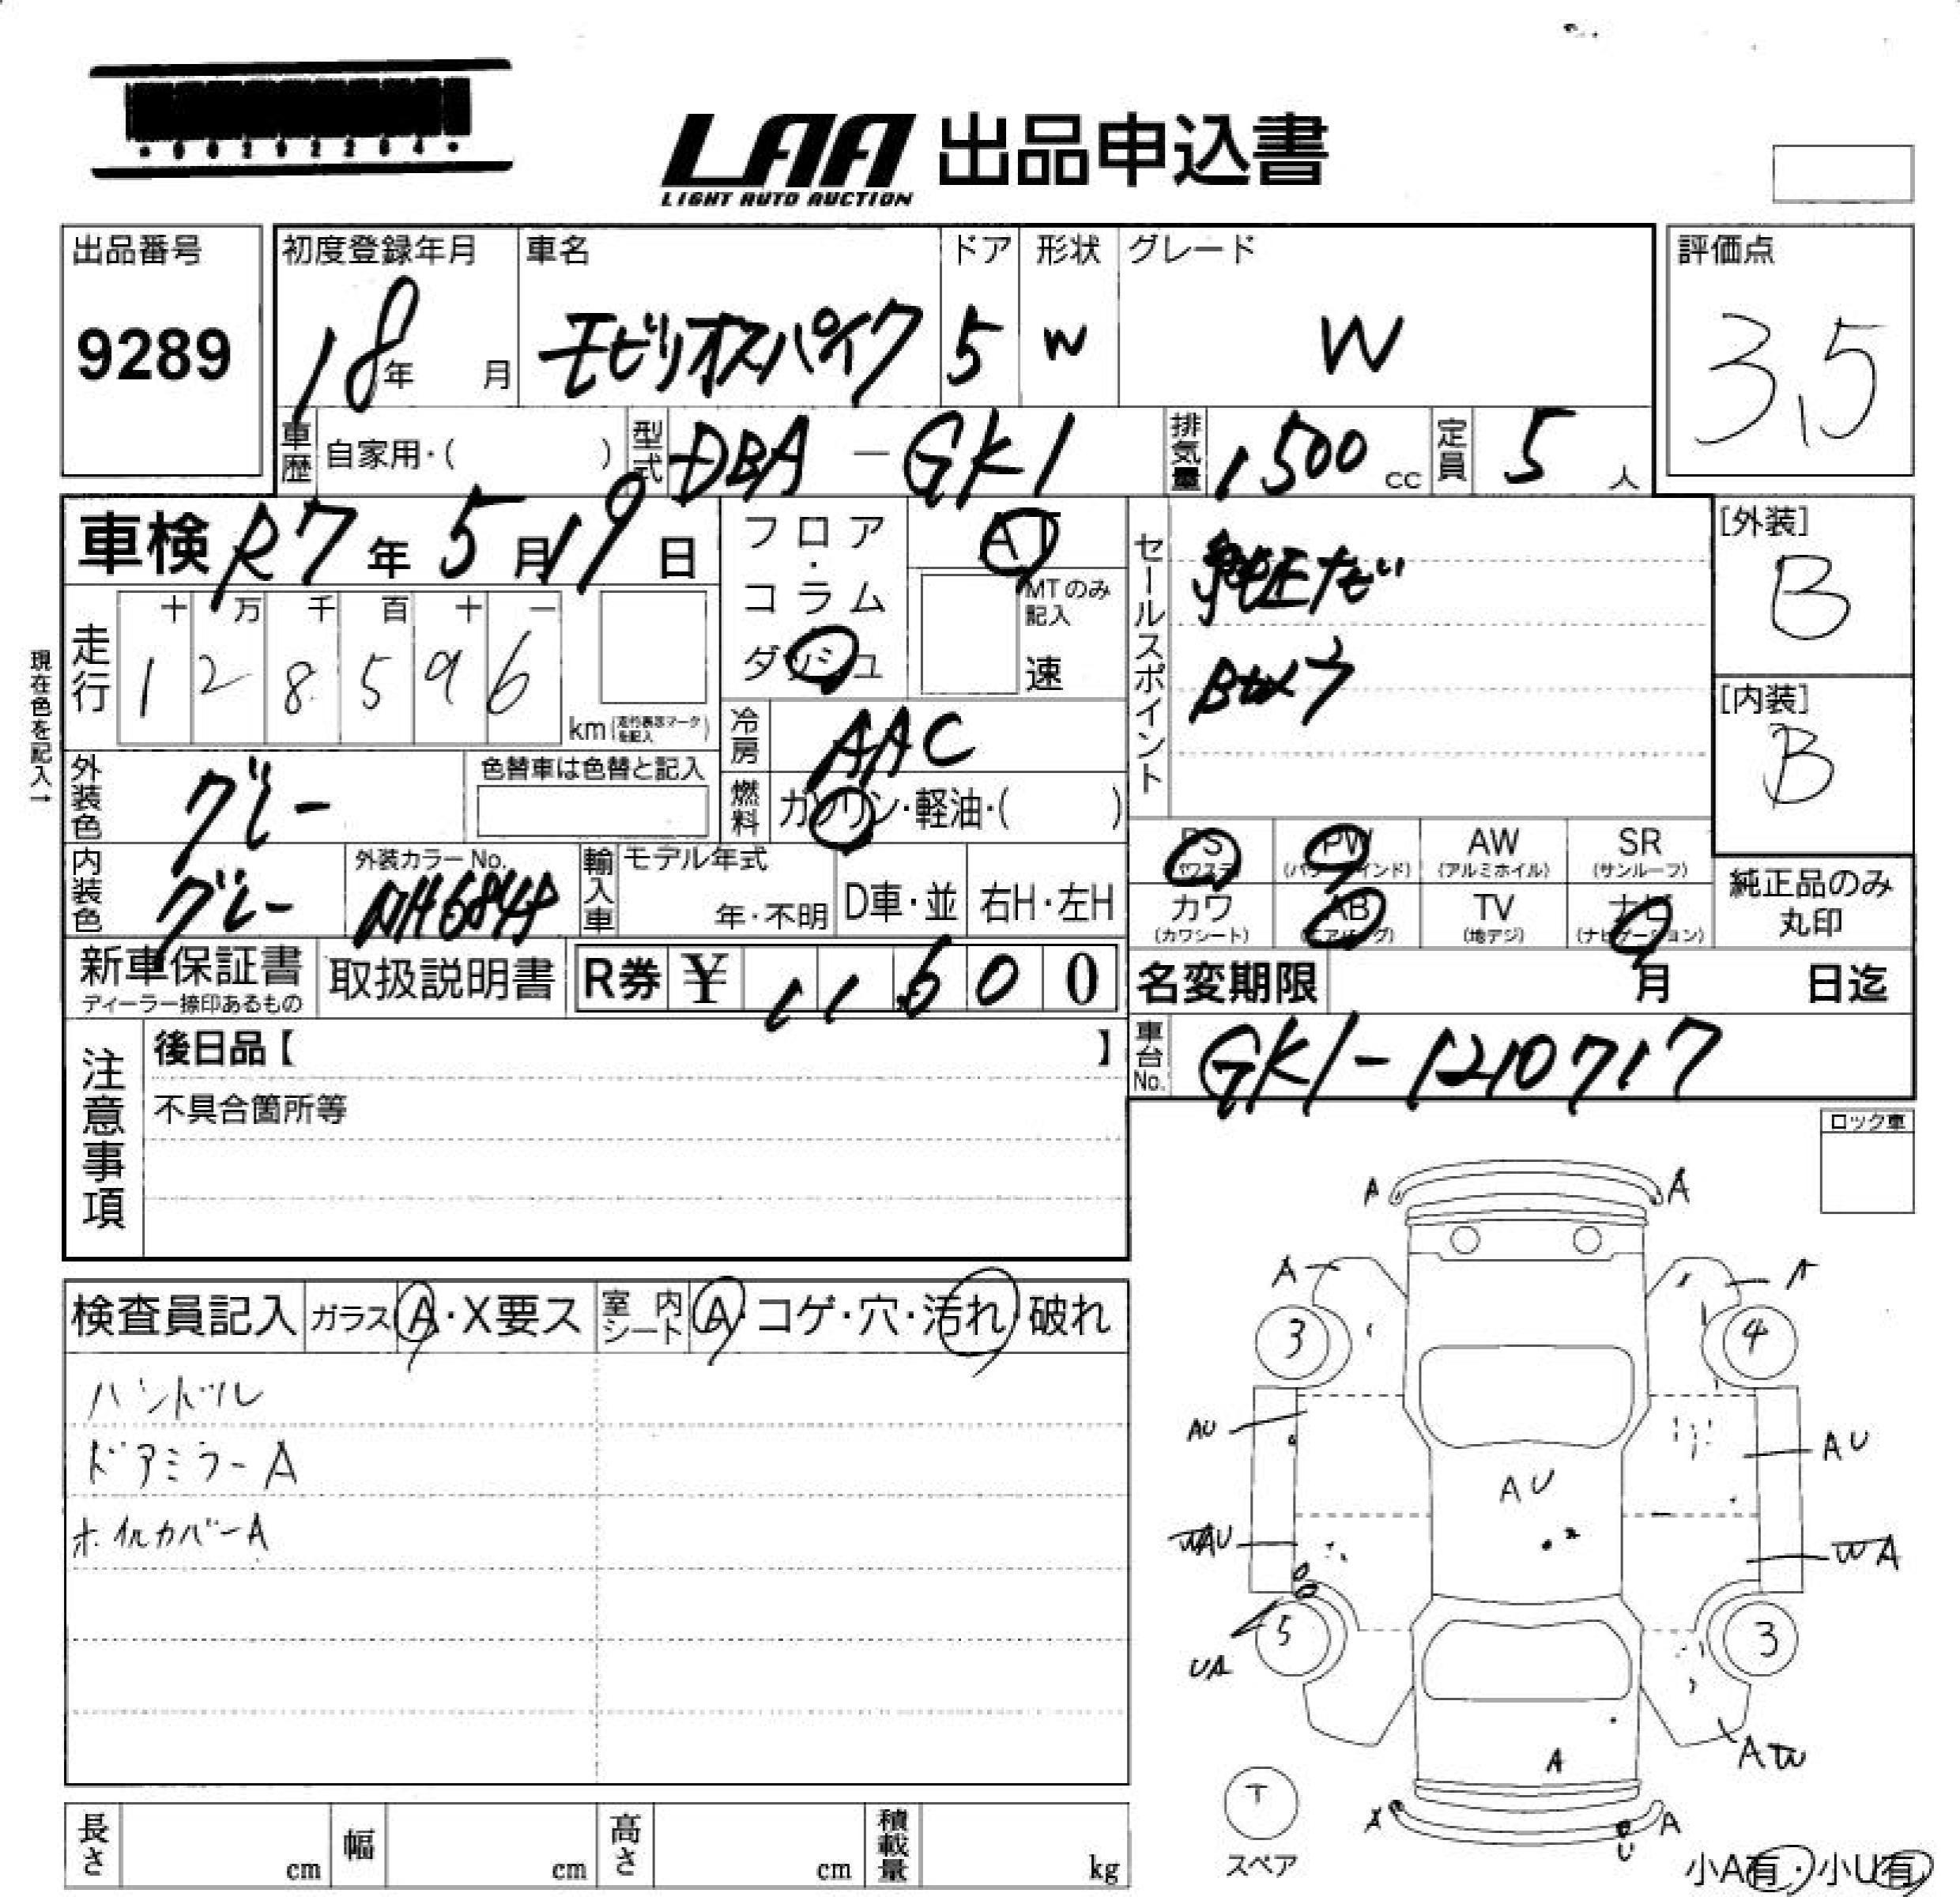 LAA 出品申込書
LIGHT AUTO AUCTION
出品番号 初度登録年月 車名 ドア 形状 グレード 評価点
9289 18年 月 モビリオスパイク 5 W W 3.5
車歴 自家用・( ) 型式 DBA-GK1 排気量 1500 cc 定員 5 人
車検 R7年 5月 19日
フロア・コラム ダッシュ
AT
MTのみ記入
速
セールスポイント
純正ナビ
Bカメラ
[外装]
B
[内装]
B
現在色を記入→
走行 十 万 千 百 十 一
1 2 8 5 9 6 km(走行表示マークを記入)
冷房 AAC
燃料 ガソリン・軽油・( )
外装色 グレー 色替車は色替と記入
内装色 グレー 外装カラーNo. NH684P
輸入車 モデル年式 年・不明 D車・並 右H・左H
PS PW AW SR
(パワステ) (パワーウインド) (アルミホイル) (サンルーフ)
カワ AB TV ナビ
(カワシート) (エアバッグ) (地デジ) (ナビゲーション)
純正品のみ
丸印
新車保証書 取扱説明書 R券 ¥ 11,600
ディーラー捺印あるもの
名変期限 月 日迄
車台No. GK1-1210717
注意事項
後日品【 】
不具合箇所等
ロック車
検査員記入 ガラス A・X要ス 室内シート A・コゲ・穴・汚れ・破れ
ハンドル
ドアミラーA
ホイルカバーA
A A
A A
3 4
AU AU
AU
WAU WA
5 3
UA
AW
A
T
スペア
X A
U
小A有・小U有
長さ cm 幅 cm 高さ cm 積載量 kg